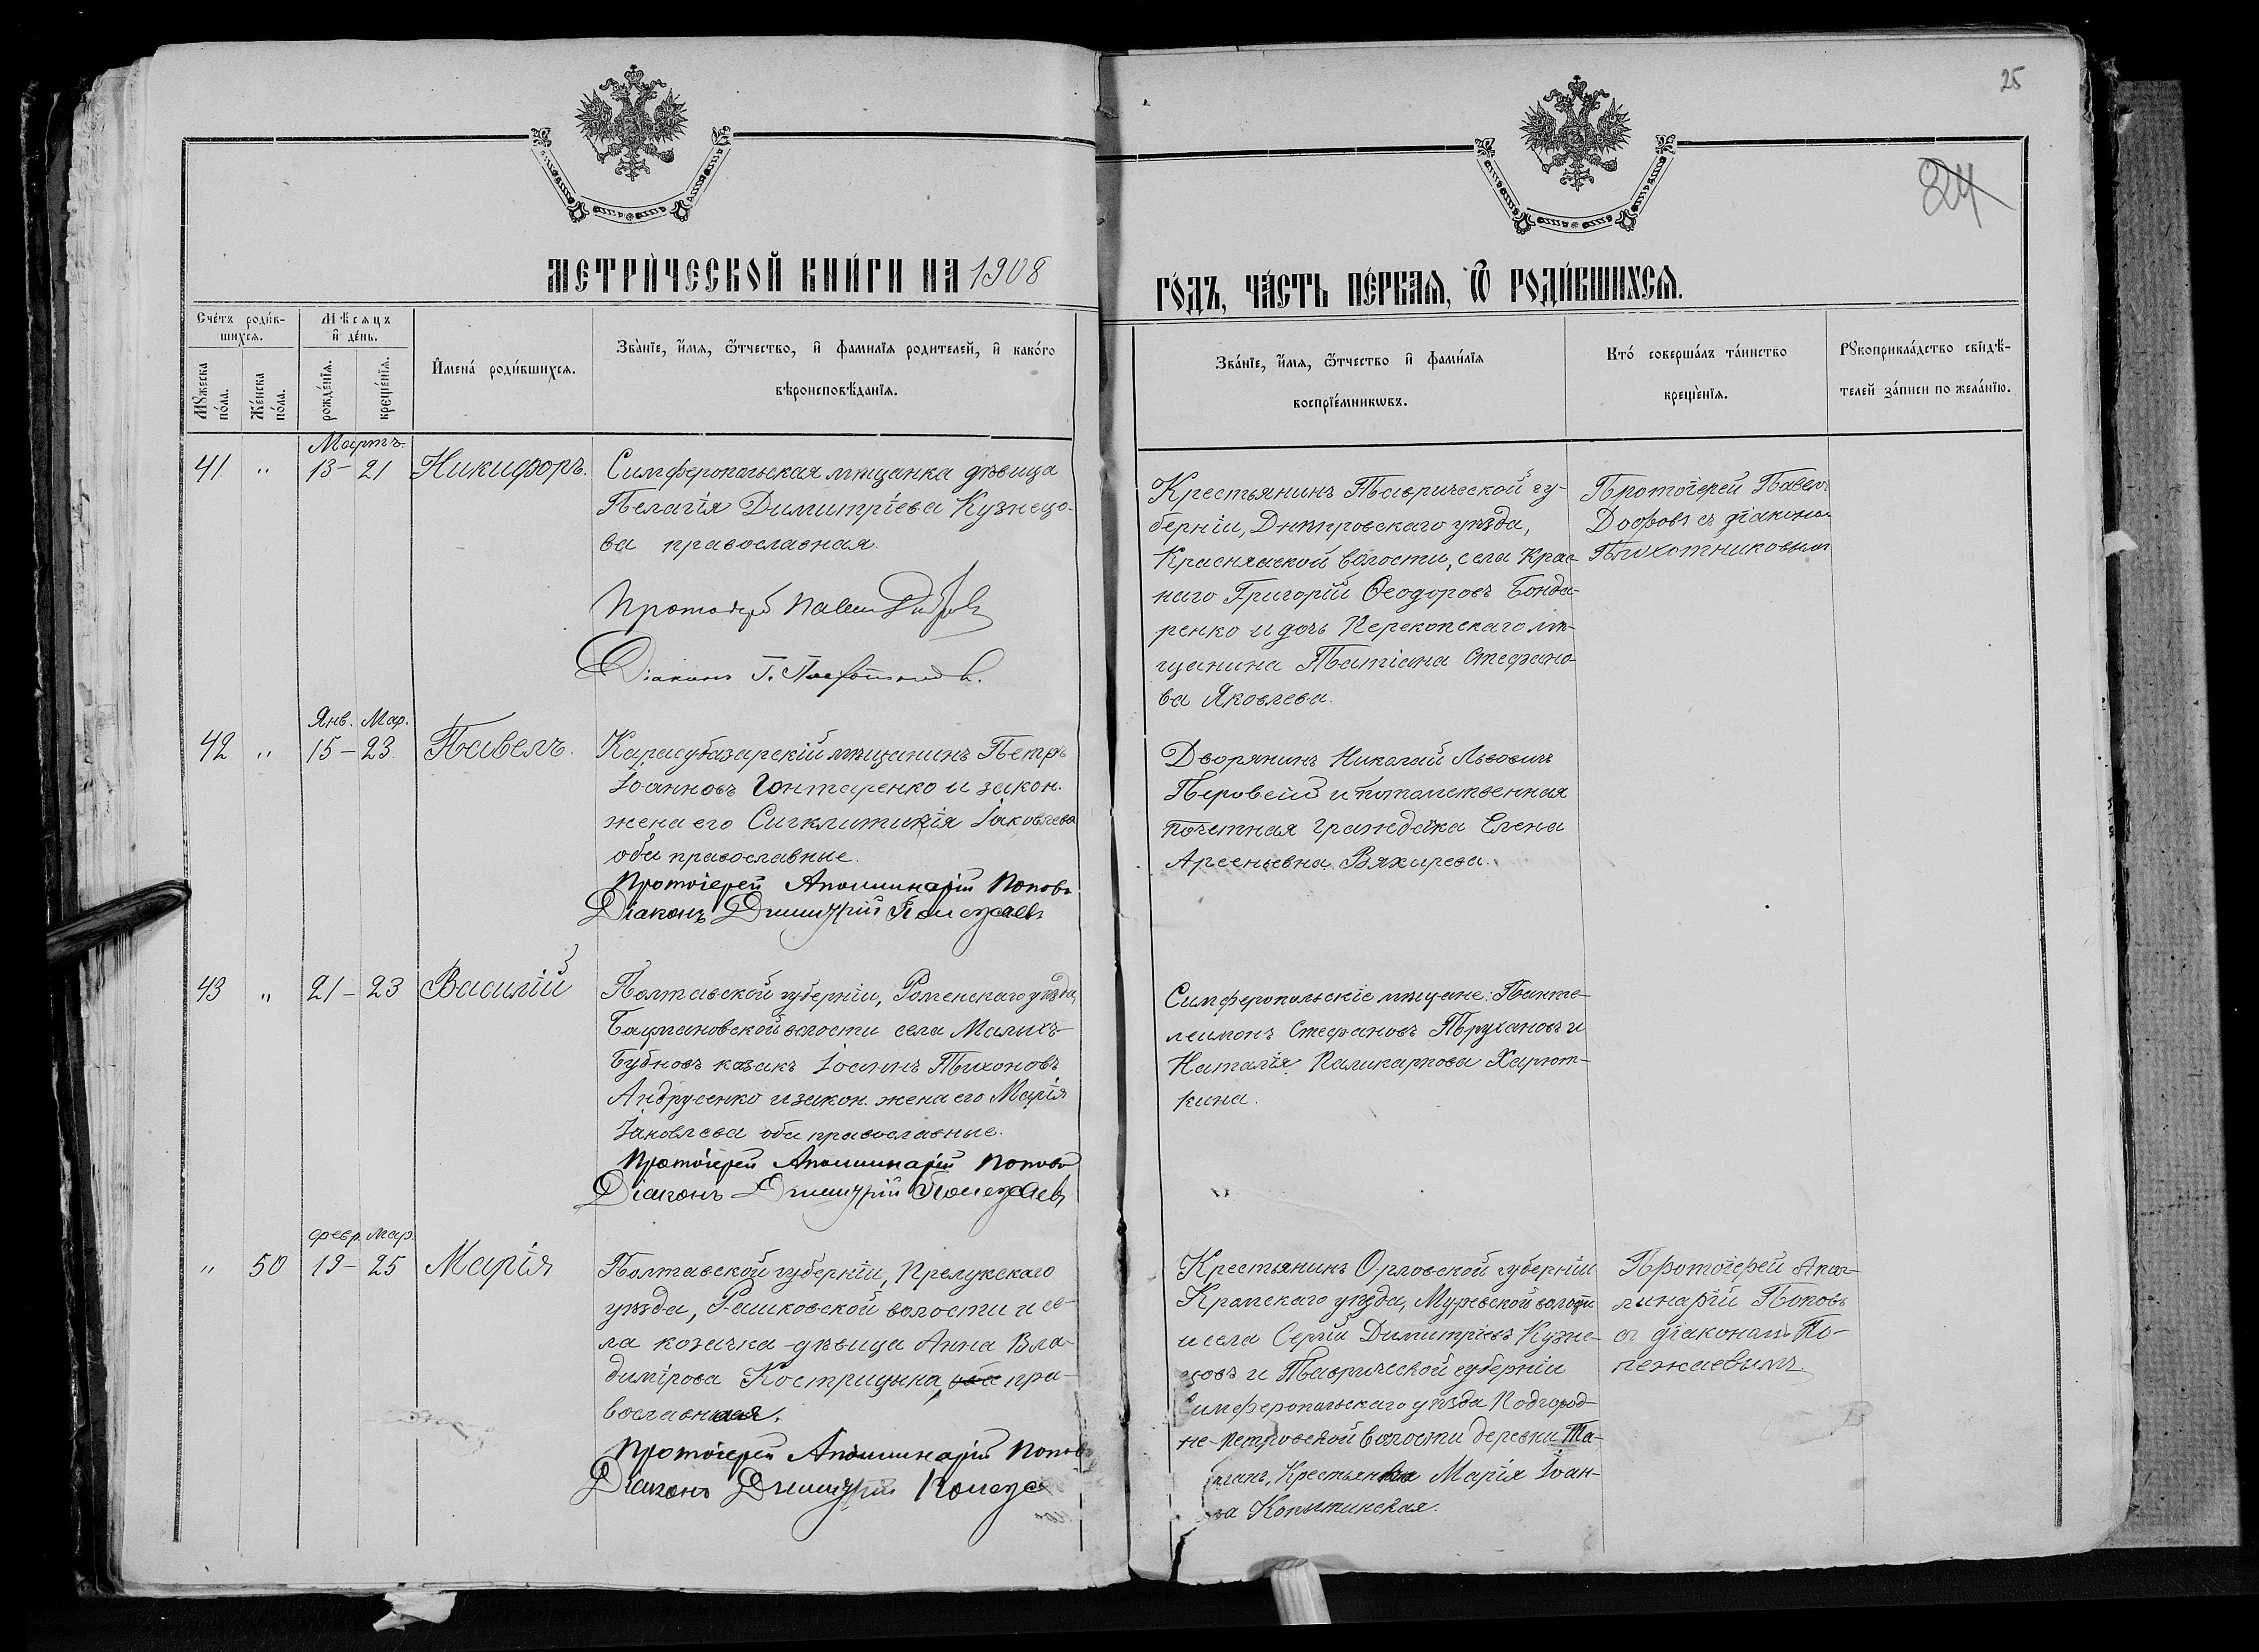 25
24
МЕТРИ́ЧЕСКОЙ КНИ́ГИ НА 1908
ГО́ДЪ, ЧА́СТЬ ПЕ́РВАѦ, Ѿ РОДИ́ВШИХСѦ.
Сче́тъ роди́в-
шихсѧ.
Мꙋжеска
по́ла.
Же́нска
по́ла.
Мѣ́сѧцъ
и҆ де́нь.
рожде́нїѧ.
креще́нїѧ.
И҆мена́ роди́вшихсѧ.
Зва́нїе, и҆́мѧ, ѻ҆́тчество, и҆ фами́лїѧ роди́телей, и҆ како́го
вѣроисповѣ́данїѧ.
Зва́нїе, и҆́мѧ, ѻ҆́тчество и҆ фами́лїѧ
воспрїе́мникωвъ.
Кто́ соверша́лъ та́инство
креще́нїѧ.
Рꙋкоприкла́дство свидѣ́-
телей за́писи по жела́нїю.
Мартъ
41 " 13 - 21 Никифоръ.
Симферопольская мѣщанка дѣвица
Пелагія Димитріева Кузнецо-
ва православная.
Протоіерей Павелъ
Діаконъ
Крестьянинъ Таврической гу-
берніи, Днѣпровскаго уѣзда,
Краснянской волости, села Крас-
наго Григорій Ѳеодоровъ Бонда-
ренко и дочь Перекопскаго мѣ-
щанина Татіана Стефано-
ва Яковлева.
Протоіерей Павелъ
съ діакономъ
Пѣхотниковымъ
Янв. Мар.
42 " 15 - 23. Павелъ.
Карасубазарскій мѣщанинъ Петръ
Іоанновъ Гонтаренко и закон.
жена его Сигклитикія Іаковлева
оба православные.
Протоіерей Аполлинарій Поповъ
Діаконъ Димитрій Полежаевъ
Дворянинъ Николай Львовичъ
Перовскій и потомственная
почетная гражданка Елена
Арсеньевна Вяхирева.
43 " 21 - 23 Василій
Полтавской губерніи, Роменскаго уѣзда,
Бацмановской волости села Малыхъ
Бубновъ козакъ Іоаннъ Тихоновъ
Андрусенко и закон. жена его Марія
Іаковлева оба православные.
Протоіерей Аполлинарій Поповъ
Діаконъ Димитрій Полежаевъ
Симферопольскіе мѣщане: Панте-
леимонъ Стефановъ Трухановъ и
Наталія Поликарпова Харют-
кина.
Февр. Мар.
" 50 19 - 25 Марія
Полтавской губерніи, Прилукскаго
уѣзда, Рашковской волости и се-
ла козачка - дѣвица Анна Вла-
димірова Кострицына, оба пра-
вославная.
Протоіерей Аполлинарій Поповъ
Діаконъ Димитрій
Крестьянинъ Орловской губерніи
Кромскаго уѣзда, волости
и села Сергій Димитріевъ Кузне-
цовъ и Таврической губерніи
Симферопольскаго уѣзда Подгород-
не-Петровской волости деревни
Крестьянка Марія Іоан-
ва Копытинская.
Протоіерей Апол-
линарій Поповъ
съ діакономъ По-
лежаевымъ